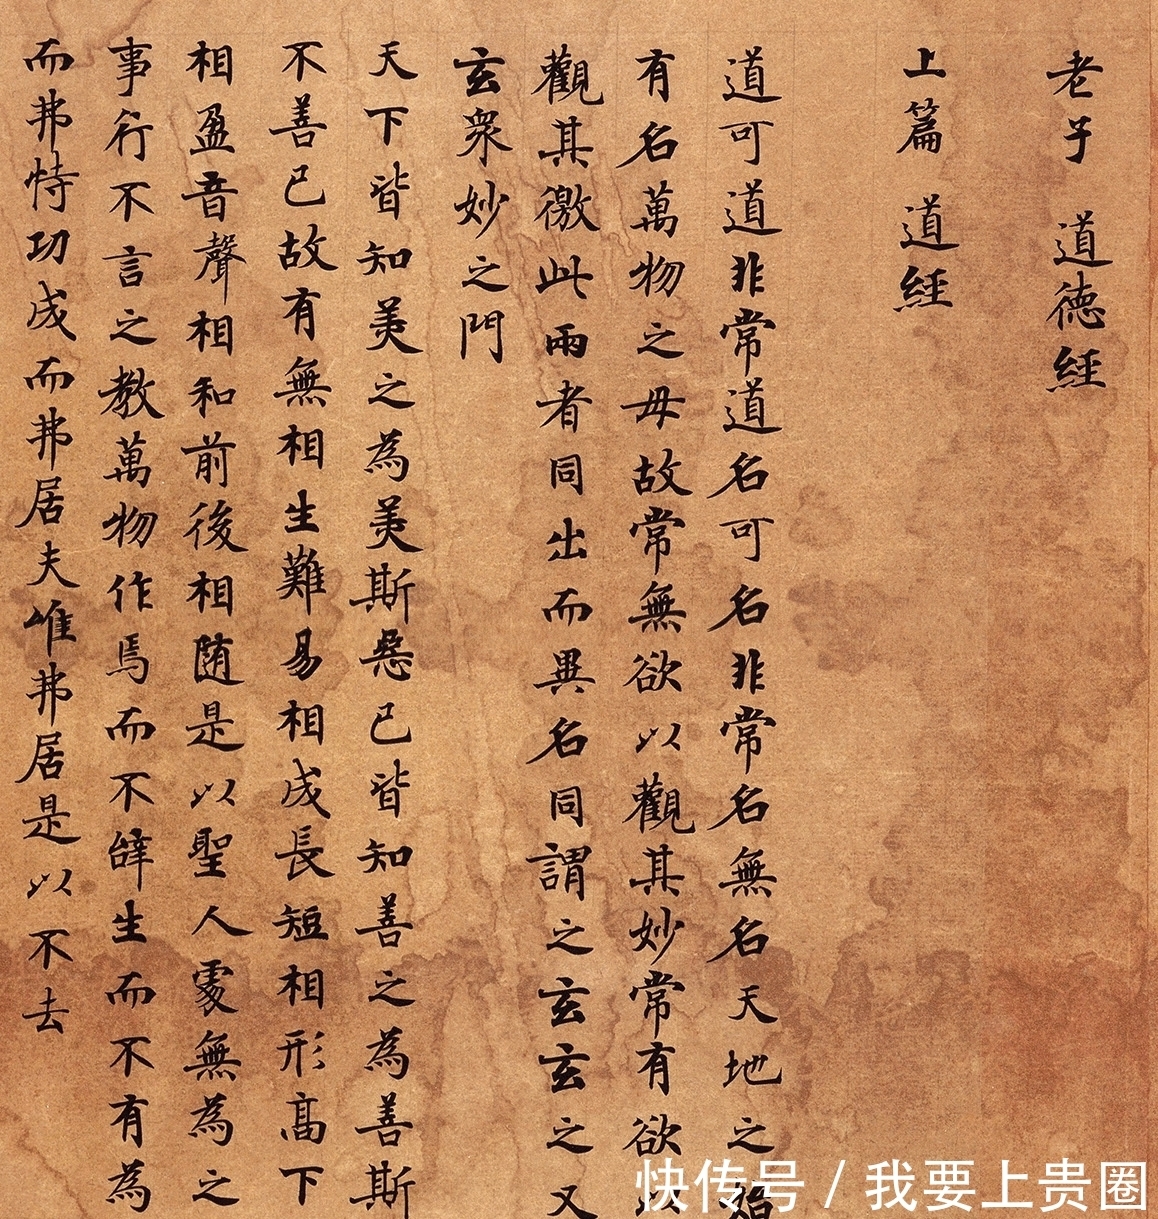 老子 道德經
上篇 道經
道可道非常道名可名非常名無名天地之始
有名萬物之母故常無欲以觀其妙常有欲以
觀其徼此兩者同出而異名同謂之玄玄之又
玄衆妙之門
天下皆知美之為美斯惡已皆知善之為善斯
不善已故有無相生難易相成長短相形高下
相盈音聲相和前後相随是以聖人處無為之
事行不言之教萬物作焉而不辭生而不有為
而弗恃功成而弗居夫唯弗居是以不去
快传号 / 我要上贵圈